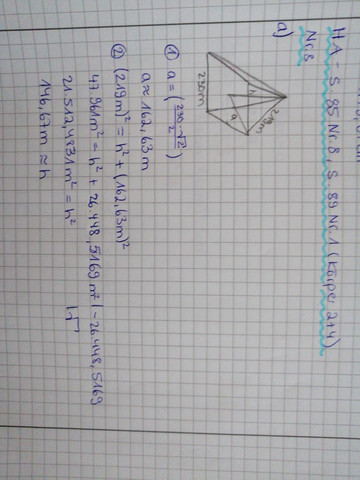 HA - S. 85 Nr. 8, S. 89 Nr. 1 (Körper 2+4)
Nr. 8
a)
230m
h
a
219m
① a = (230·√2 / 2)
a ≈ 162,63 m
② (219m)² = h² + (162,63m)²
47 961m² = h² + 26.448,5169 m² | - 26.448,5169
21.512,4831m² = h² | √
146,67m ≈ h